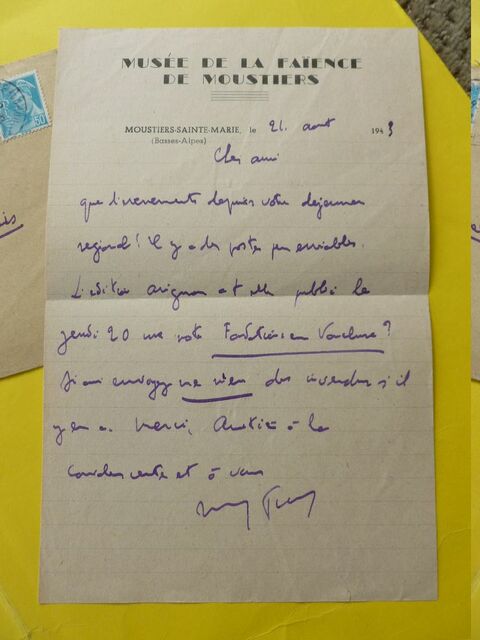 MUSÉE DE LA FAÏENCE
DE MOUSTIERS
MOUSTIERS-SAINTE-MARIE, le 21. aout 1943
(Basses-Alpes)
Cher ami
que d'evenements depuis votre dejeuner
regional! Il y a des postes peu enviables.
L'edition avignon a t elle publié le
jeudi 20 une note Fontaine en Vaucluse?
Si oui envoyez des invendus s'il
y en a. Merci, Amitié à la
et à vous
50